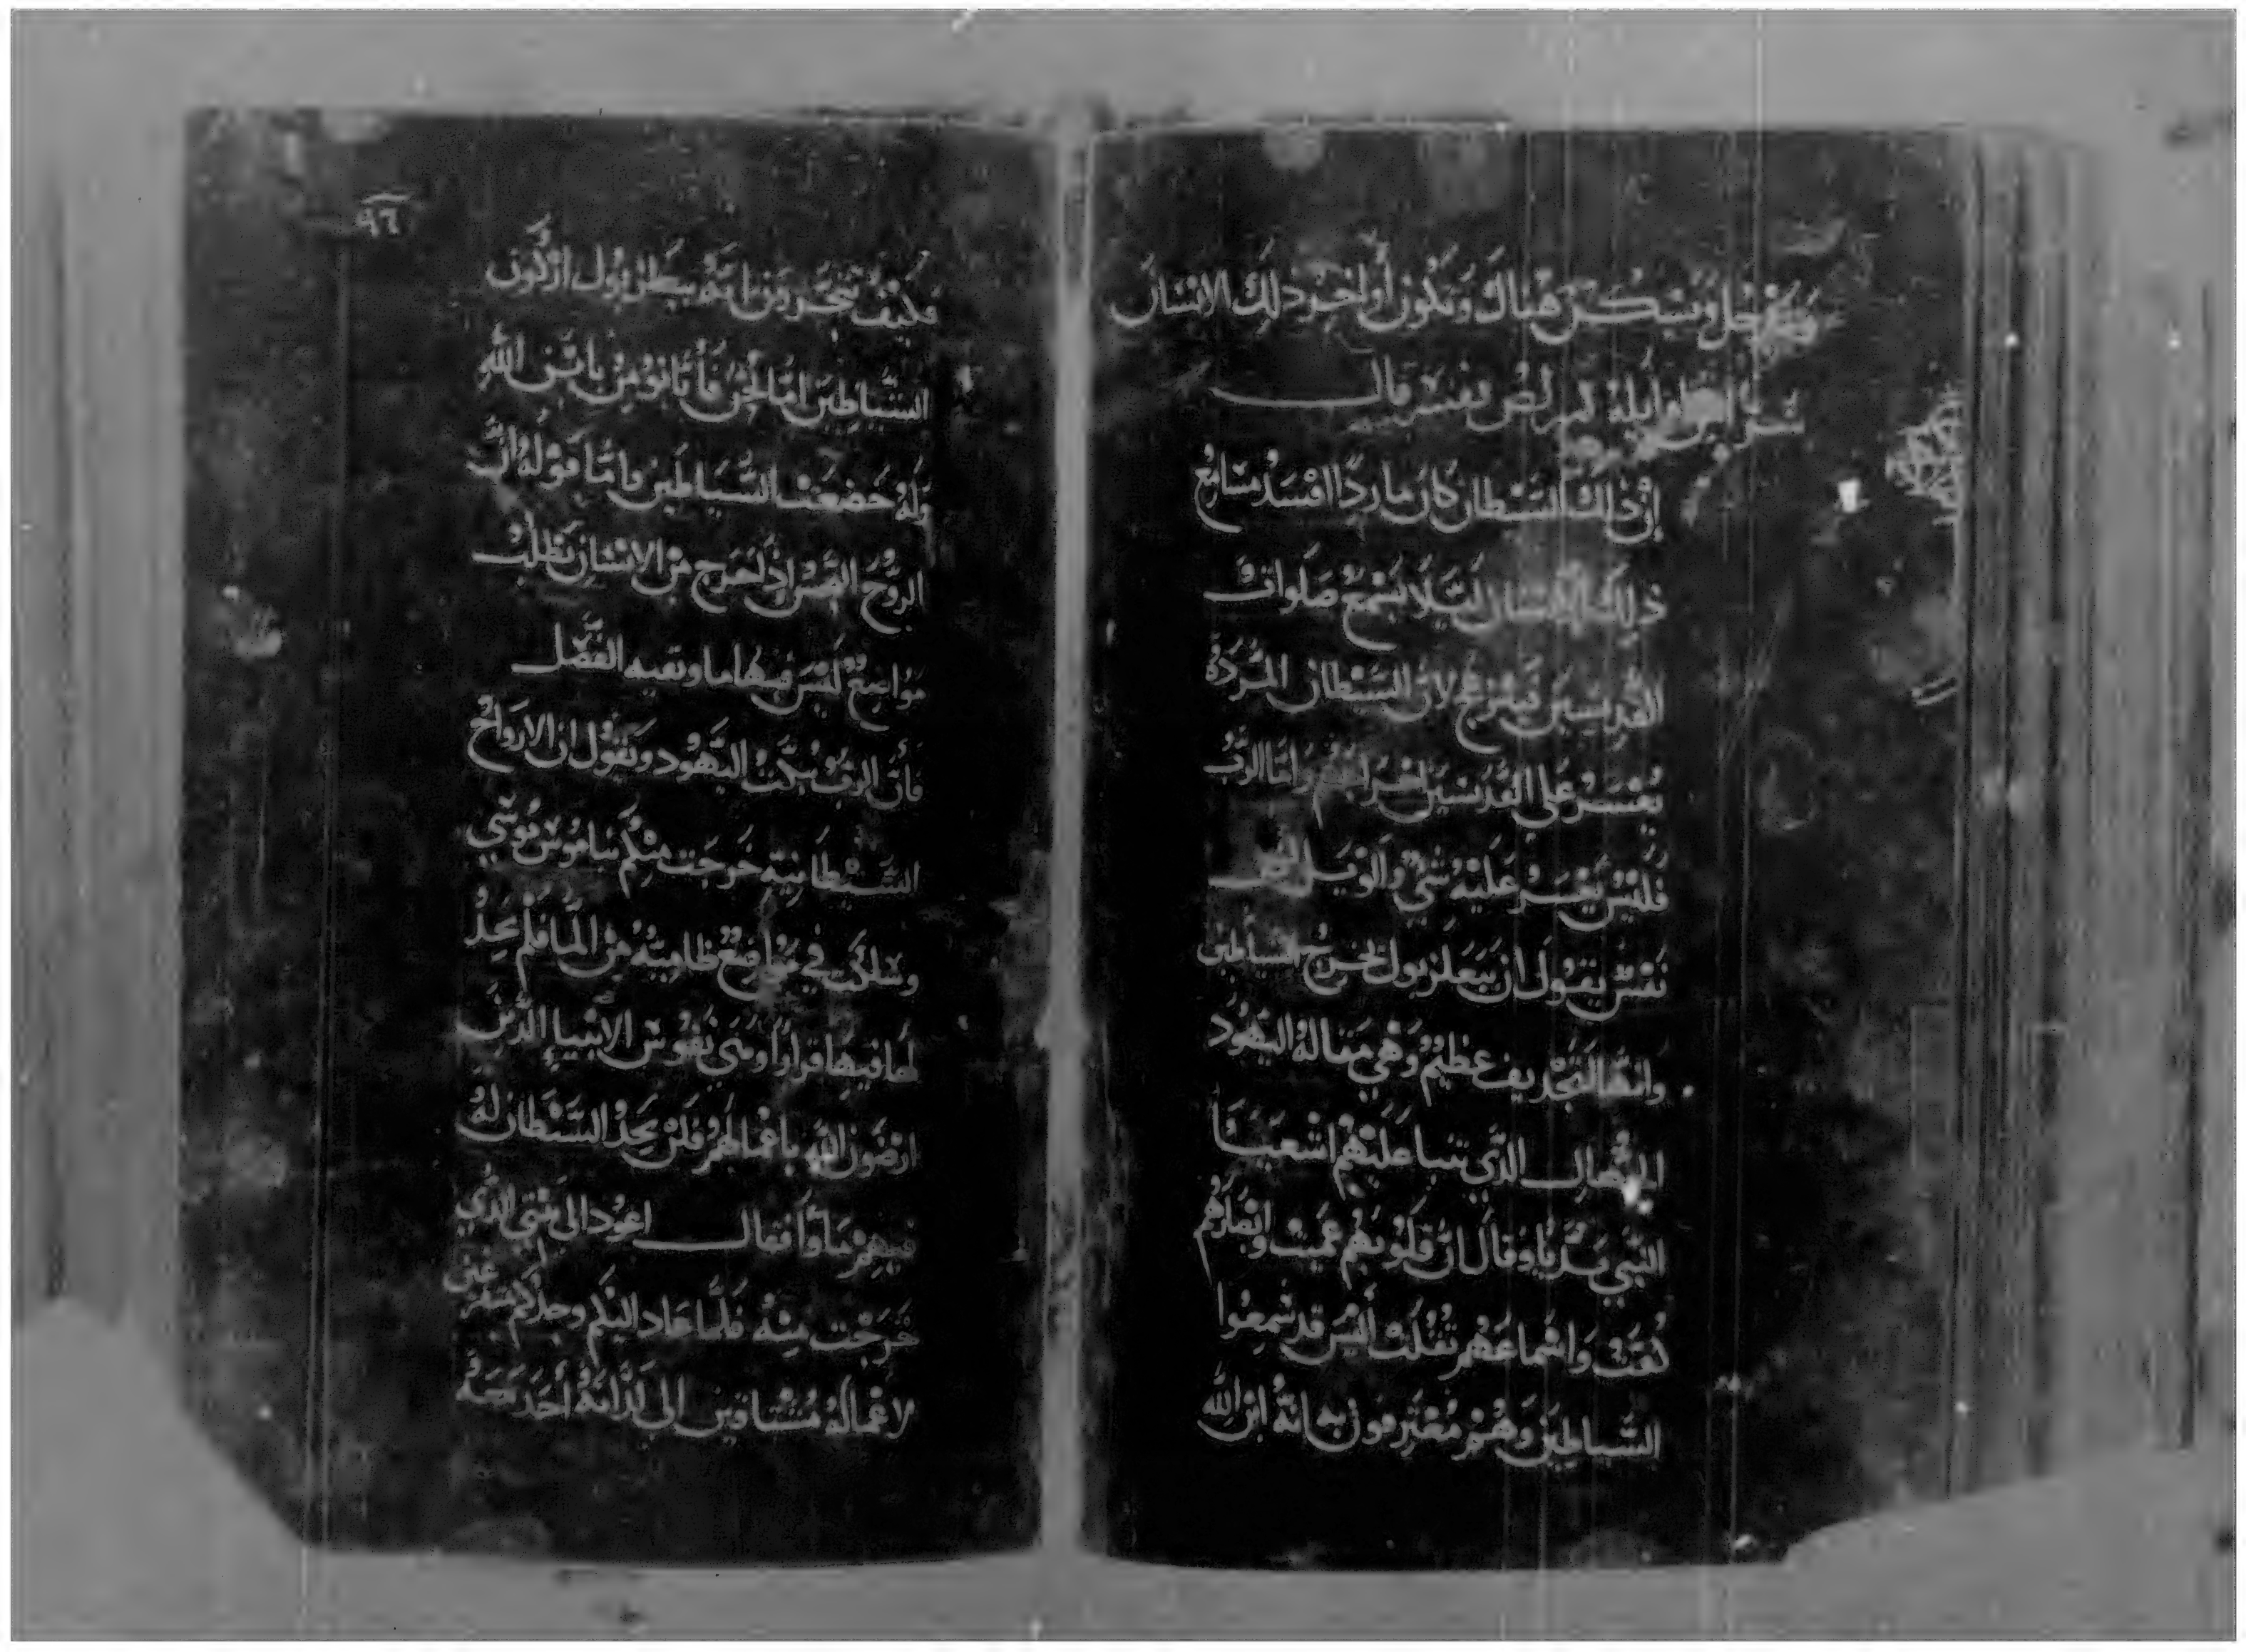 فتدخل وتسكن هناك وتكون أواخر ذلك الانسان
شر من اوايله لم لص يفسر قال
إن ذلك الشيطان كان ماردًا افسد مسامع
ذلك الانسان ليلا يسمع صلوات
القديسين فيبرح لان الشيطان المردة
يعسر على القديسين اخراجهم واما الرب
فليس يعسر عليه شي والويل
نفس يقول ان ببعلزبول تخرج الشياطين
وانها لتجديف عظيم وهي مقالة اليهود
الجهال الذي تنبا عليهم اشعيا
النبي بديًا وقال ان قلوبهم عميت وابصارهم
واسماعهم ثقلت اليس قد سمعوا
الشياطين وهم معترفون به انه ابن الله
٩٦
فكيف تتجرون انتم ببعلزبول اركون
الشياطين اما نحن فأنا نومن بابن الله
وله خضعت الشياطين واما قوله ان
الروح النجس اذا خرج من الانسان يطلب
مواضع ليس فيها ما وبقيه الفصل
فأن الرب يبكت اليهود ويقول ان الارواح
الشيطانية خرجت منكم بناموس موسي
وسلكت في مواضع ظامية من الما فلم تجد
لها فيها قرارًا ومني نفوس الانبيا الذين
ارضون الله باعمالهم فلن يجد الشيطان له
فيهم مأوا فقال اعود الى بيتي الذي
خرجت منه فلما عاد اليكم وجدكم متفرغين
لاعماله مشتاقين الى لذاته أخذ معه